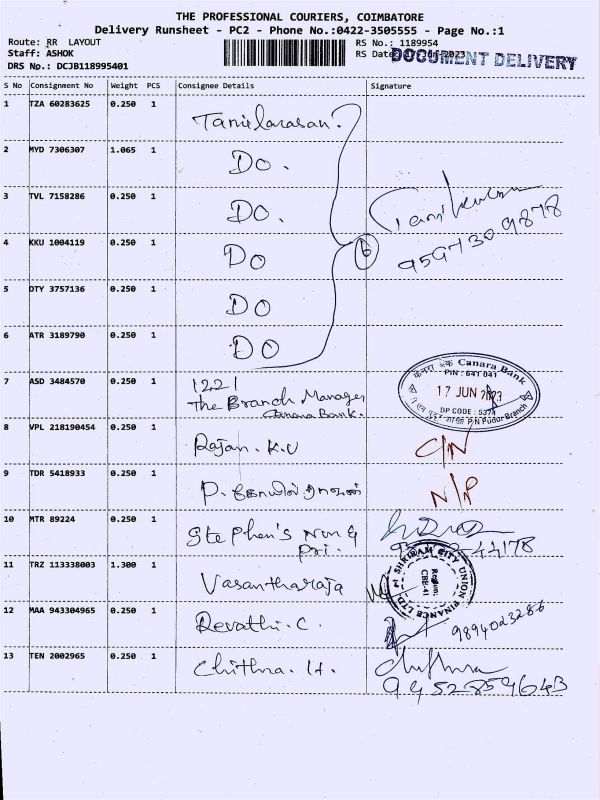 THE PROFESSIONAL COURIERS, COIMBATORE
Delivery Runsheet - PC2 - Phone No.:0422-3505555 - Page No.:1
Route: RR LAYOUT
RS No.: 1189954
Staff: ASHOK
RS Date
DOCUMENT DELIVERY
DRS No.: DCJB118995401
S No Consignment No Weight PCS Consignee Details Signature
1 TZA 60283625 0.250 1 Tamilarasan.
2 MYD 7306307 1.065 1 DO.
3 TVL 7158286 0.250 1 DO.
4 KKU 1004119 0.250 1 DO 6
5 OTY 3757136 0.250 1 DO
6 ATR 3189790 0.250 1 DO
7 ASD 3484570 0.250 1 1221
The Branch Manager
Canara Bank.
Canara Bank
PIN : 641 041
17 JUN
DP CODE : 5374
P N Pudur Branch
8 VPL 218190454 0.250 1 Rajan. K.V C/N
9 TDR 5418933 0.250 1 N/P
10 MTR 89224 0.250 1 Stephen's
Pri.
11 TRZ 113338003 1.300 1 Vasantharaja
SHRIRAM CITY UNION FINANCE LTD.
Region:
CBE-41
12 MAA 943304965 0.250 1 Revathi. C. 9894023286
13 TEN 2002965 0.250 1 Chithra. H. Chithra